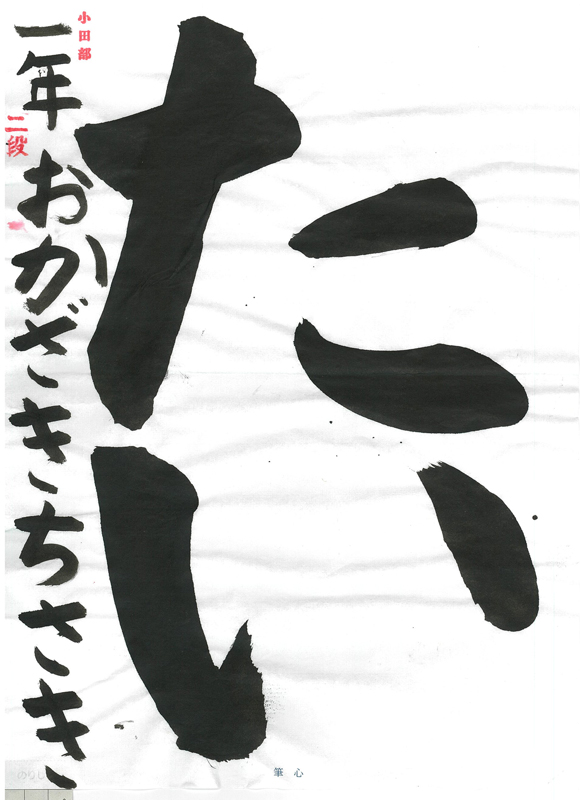 たい
小田部
一年 おかざきちさき
二段
筆心